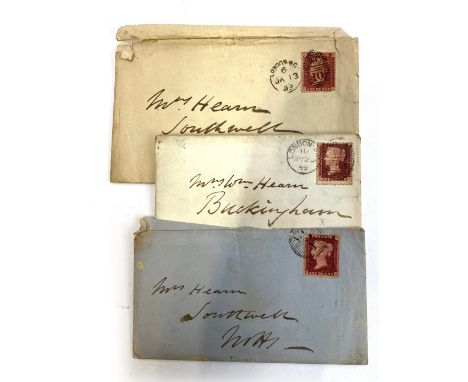 LONDON·W.C
6
JA 13
Mrs Hearn
Southwell
LONDON
Mrs Wm Hearn
Buckingham
Mrs Hearn
Southwell
Notts